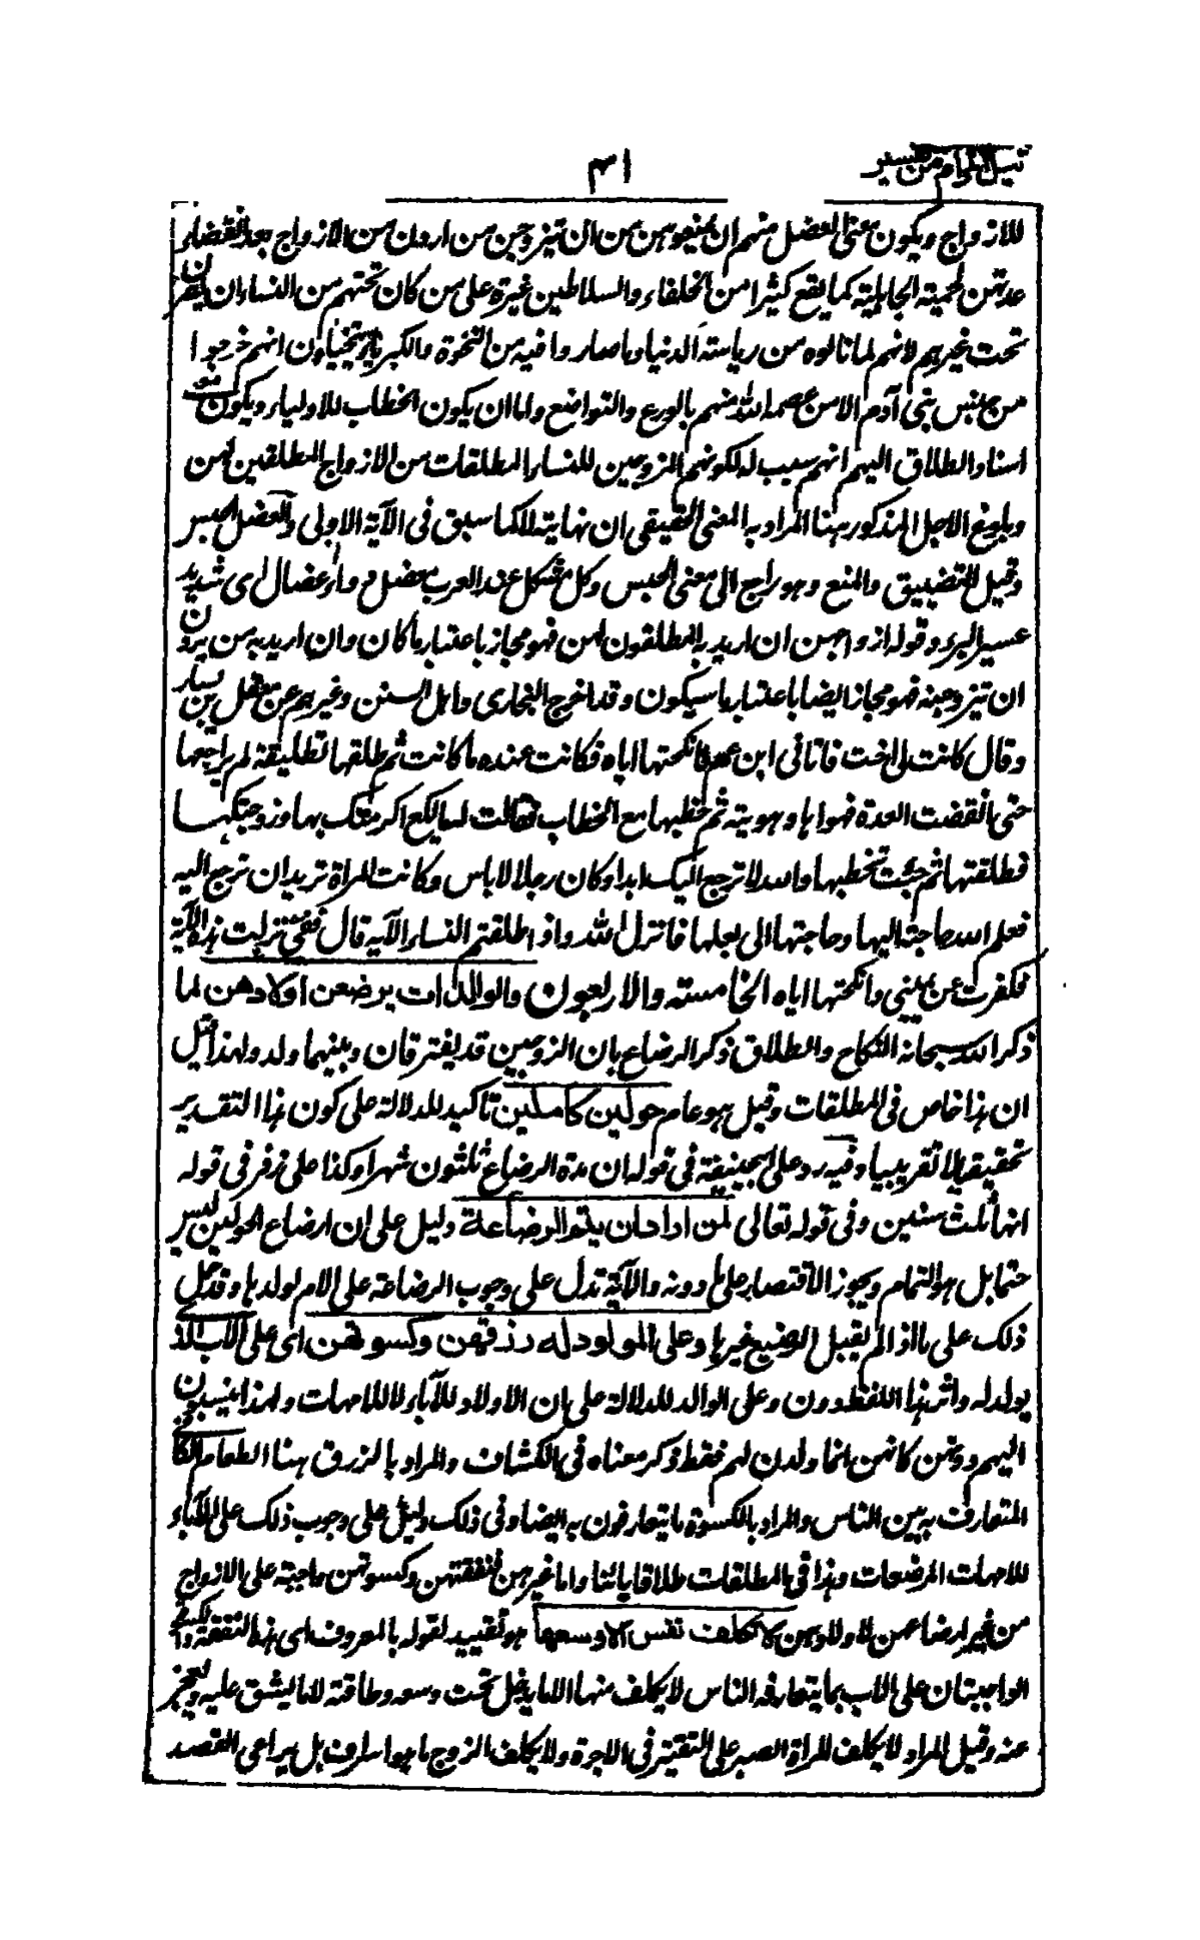 نيل المرام من تفسير
٣١
للازواج ويكون معنى العضل منهم ان يمنعوهن من ان يتزوجن من اردن من الازواج بعد انقضاء
عدتهن لحمية الجاهلية كما يقع كثيرا من الخلفاء والسلاطين غيرة على من كان تحتهم من النساء ان يصرن
تحت غيرهم لانهم لما نالوه من رياسة الدنيا وما صاروا فيه من النخوة والكبرياء يتخيلون انهم خرجوا
من جنس بنى آدم الا من عصمه الله منهم بالورع والتواضع واما ان يكون الخطاب للاولياء ويكون معنى
اسناد الطلاق اليهم انهم سبب له لكونهم المزوجين للنساء المطلقات من الازواج المطلقين لهن
وبلوغ الاجل المذكور ههنا المراد به المعنى الحقيقى ان نهايته لا كما سبق فى الآية الاولى والعضل الحبس
وقيل التضييق والمنع وهو راجع الى معنى الحبس وكل مشكل عند العرب معضل وداء عضال اى شديد
عسير البرء وقوله ازواجهن ان اريد به المطلقون لهن فهو مجاز باعتبار ما كان وان اريد به من يردن
ان يتزوجنه فهو مجاز ايضا باعتبار ما سيكون وقد اخرج البخارى واهل السنن وغيرهم عن معقل بن يسار
وقال كانت لى اخت فاتانى ابن عم فانكحتها اياه فكانت عنده ما كانت ثم طلقها تطليقة لم يراجعها
حتى انقضت العدة فهواها وهويته ثم خطبها مع الخطاب فقالت له يالكع اكرمتك بها وزوجتكها
فطلقتها ثم جئت تخطبها والله لا ترجع اليك ابدا وكان رجلا لا باس وكانت المراة تريد ان ترجع اليه
فعلم الله حاجته اليها وحاجتها الى بعلها فانزل الله واذا طلقتم النساء الآية قال ففى نزلت هذه الآية
فكفرت عن يمينى وانكحتها اياه الخامسة والاربعون والوالدات يرضعن اولادهن لما
ذكر الله سبحانه النكاح والطلاق ذكر الرضاع بان الزوجين قد يفترقان وبينهما ولد ولهذا قيل
ان هذا خاص فى المطلقات وقيل هو عام حولين كاملين تاكيد للدلالة على كون هذا التقدير
تحقيقيا لا تقريبيا وفيه رد على ابى حنيفة فى قوله ان مدة الرضاع ثلثون شهرا وكذا على زفر فى قوله
انها ثلث سنين وفى قوله تعالى لمن اراد ان يتم الرضاعة دليل على ان ارضاع الحولين ليس
حتما بل هو التمام ويجوز الاقتصار على ما دونه والآية تدل على وجوب الرضاعة على الام لولدها وقد حمل
ذلك على ما اذا لم يقبل الرضيع غيرها وعلى المولود له رزقهن وكسوتهن اى على الاب الذى
يولد له واثر هذا اللفظ دون وعلى الوالد للدلالة على ان الاولاد للآباء لا للامهات ولهذا ينسبون
اليهم دونهن كانهن انما ولدن لهم فقط ذكر معناه فى الكشاف والمراد بالرزق هنا الطعام الكافى
المتعارف به بين الناس والمراد بالكسوة ما يتعارفون به ايضا وفى ذلك دليل على وجوب ذلك على الآباء
للامهات المرضعات وهذا فى المطلقات طلاقا بائنا واما غيرهن فنفقتهن وكسوتهن واجبة على الازواج
من غير ارضاعهن لاولادهن لا تكلف نفس الا وسعها هو تقييد لقوله بالمعروف اى هذه النفقة والكسوة
الواجبتان على الاب بما يتعارفه الناس لا يكلف منها الا ما يدخل تحت وسعه وطاقته لا ما يشق عليه ويعجز
عنه وقيل المراد لا يكلف المراة الصبر على التقتير فى الاجرة ولا يكلف الزوج ما هو اسراف بل يراعى القصد